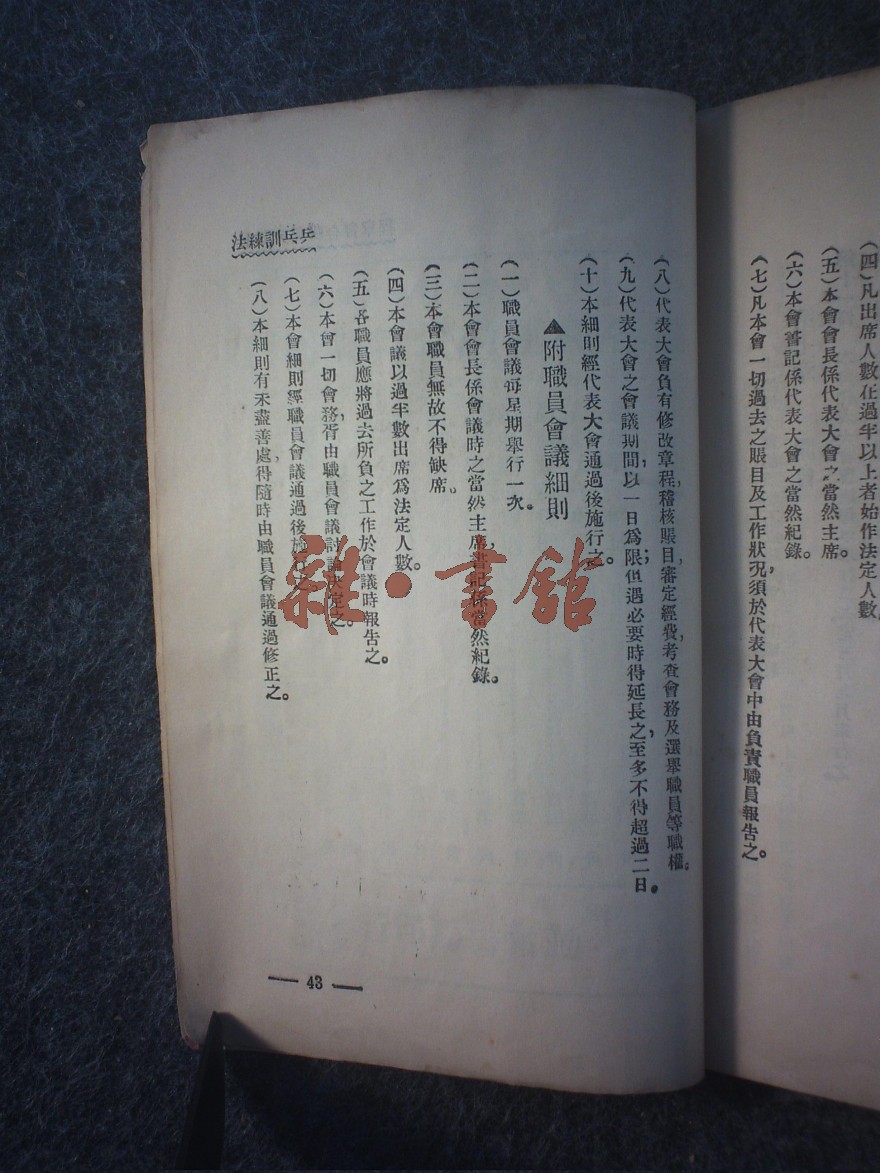 (四)凡出席人數在過半以上者始作法定人數,
(五)本會會長係代表大會之當然主席。
(六)本會書記係代表大會之當然紀錄。
(七)凡本會一切過去之賬目及工作狀況,須於代表大會中由負責職員報告之。
(八)代表大會負有修改章程,稽核賬目,審定經費,考查會務及選舉職員等職權。
(九)代表大會之會議期間,以一日爲限;但遇必要時得延長之,至多不得超過二日。
(十)本細則經代表大會通過後施行之。
▲附職員會議細則
(一)職員會議每星期舉行一次。
(二)本會會長係會議時之當然主席,書記係當然紀錄。
(三)本會職員無故不得缺席。
(四)本會議以過半數出席爲法定人數。
(五)各職員應將過去所負之工作於會議時報告之。
(六)本會一切會務,胥由職員會議討論決定之。
(七)本會細則經職員會議通過後施行之。
(八)本細則有未盡善處,得隨時由職員會議通過修正之。
法練訓乓乒
— 43 —
雜·書館